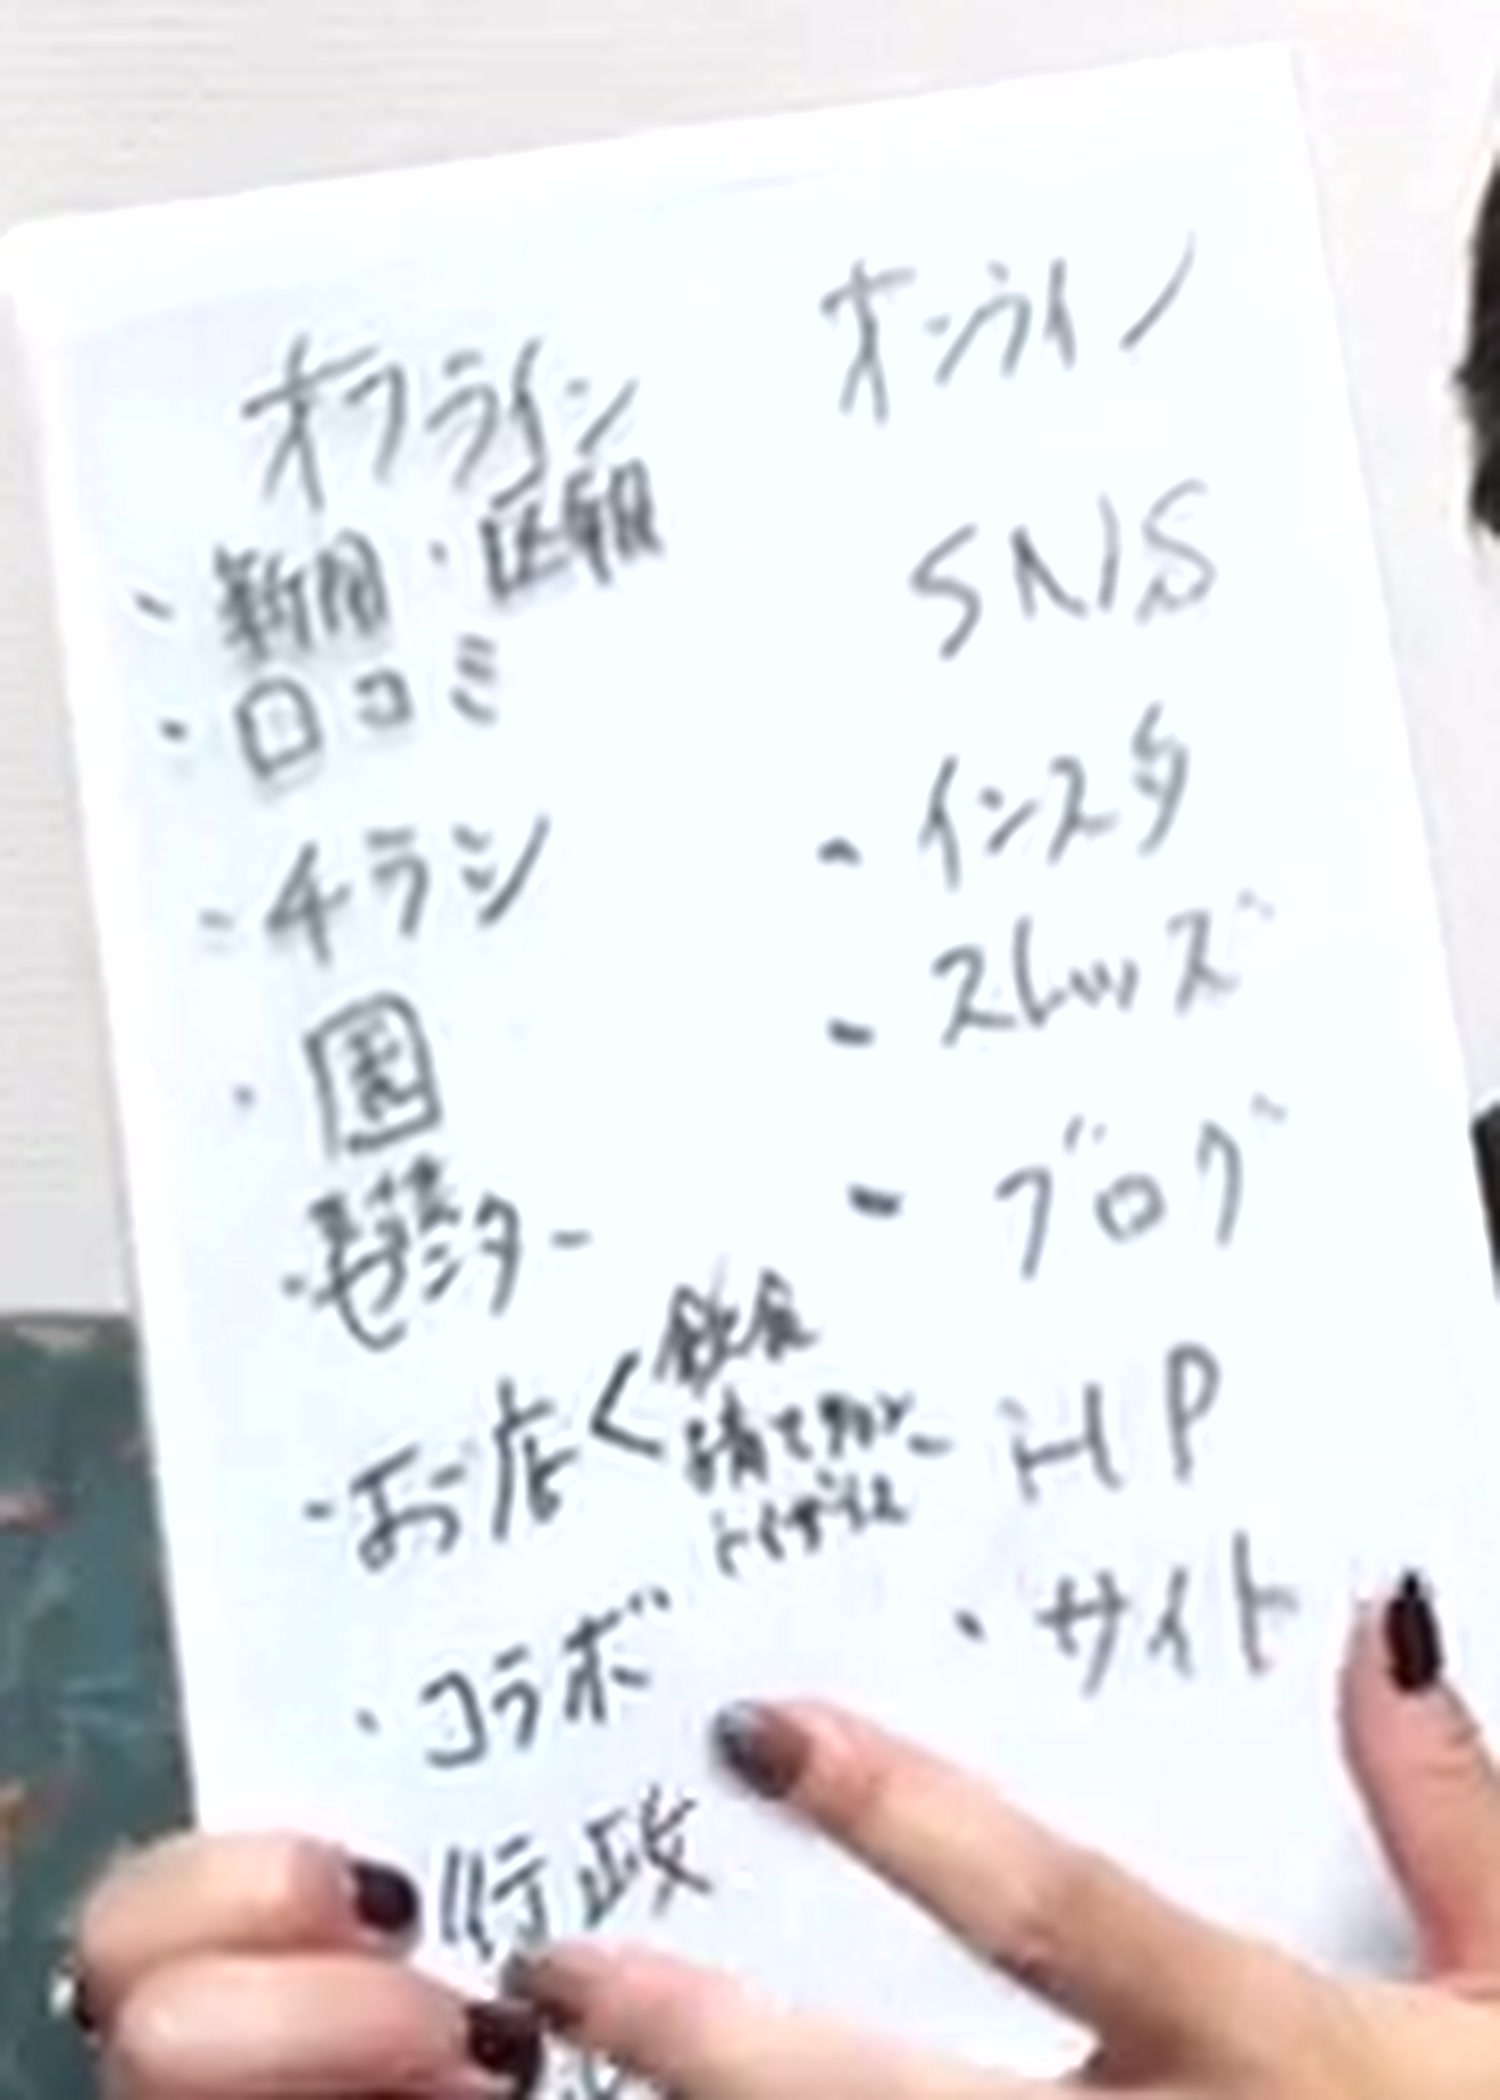 オフライン
・新聞・区報
・口コミ
・チラシ
・園
・支援
センター
・お店<飲食
・コラボ
行政
オンライン
SNS
・インスタ
・スレッズ
・ブログ
- HP
・サイト